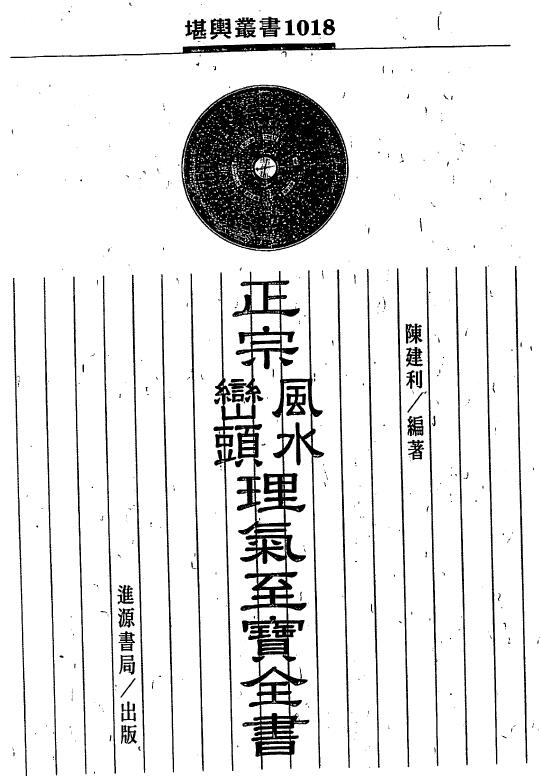 堪輿叢書1018
陳建利／編著
正宗
風水
巒頭
理氣至寶全書
進源書局／出版